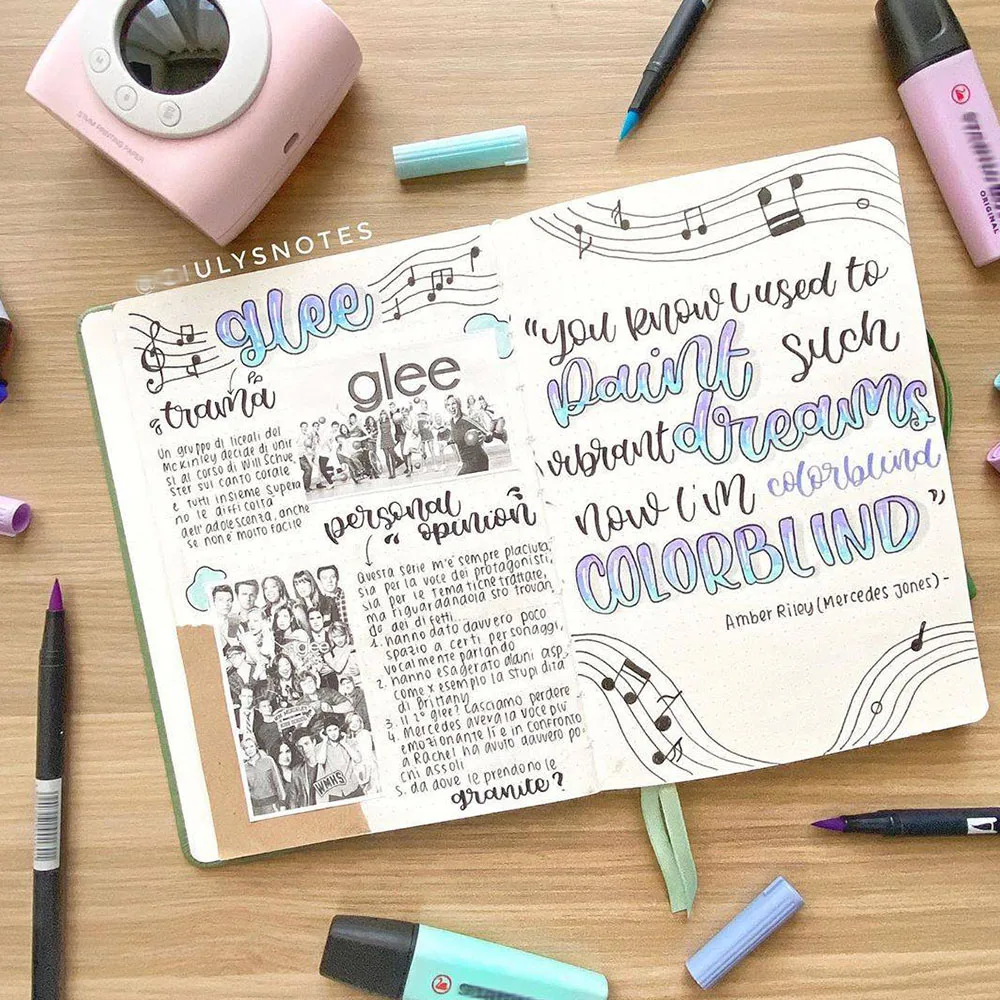 57MM PRINTING PAPER
ULYSNOTES
ORIGINAL
glee
trama
Un gruppo di liceali del
McKinley decide di unir
si al corso di Will Schue
ster sul canto corale
e tutti insieme supera
no le difficoltà
dell'adolescenza, anche
se non è molto facile
glee
personal
opinion
Questa serie m'è sempre piaciuta,
sia per la voce dei protagonisti,
sia per le tematiche trattate,
ma riguardandola sto trovan
do dei difetti...
1. hanno dato davvero poco
spazio a certi personaggi,
vocalmente parlando
2. hanno esagerato alcuni asp
come x esempio la stupidità
di Brittany
3. Il 2° glee? Lasciamo perdere
4. Mercedes aveva la voce più
emozionante lì e in confronto
a Rachel ha avuto davvero po
chi assoli
5. da dove le prendono le
granite?
WMHS
"You know I used to
paint such
vibrant dreams
now I'm colorblind
COLORBLIND"
Amber Riley (Mercedes Jones) -